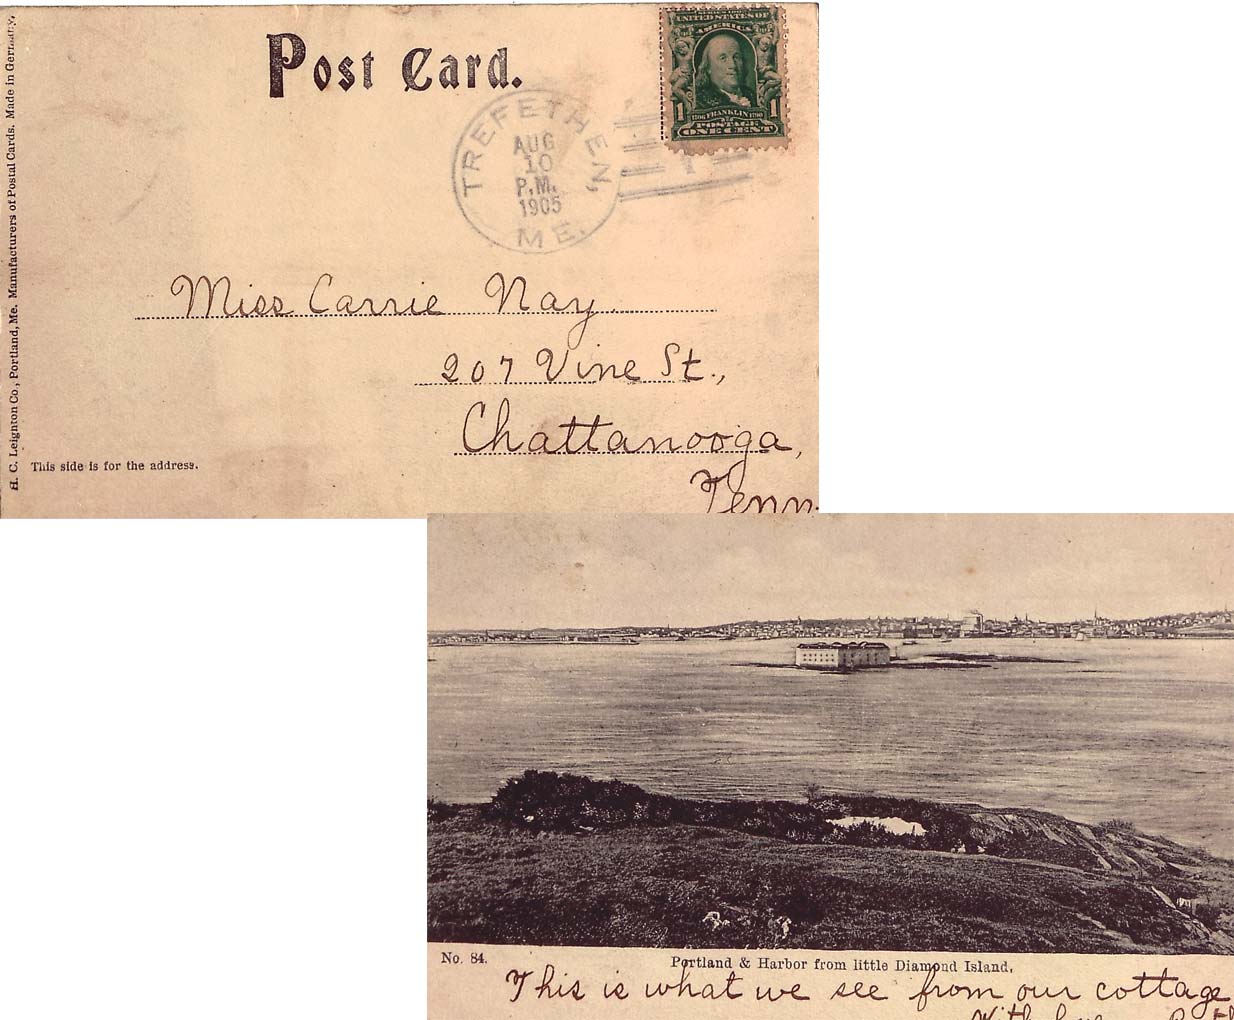 H. C. Leighton Co., Portland, Me. Manufacturers of Postal Cards. Made in Germany.
Post Card.
UNITED STATES OF
AMERICA
1 1
1706 FRANKLIN 1790
POSTAGE
ONE CENT
TREFETHEN,
AUG
10
P.M.
1905
ME.
Miss Carrie Nay
207 Vine St.,
Chattanooga,
Tenn.
This side is for the address.
No. 84.
Portland & Harbor from little Diamond Island,
This is what we see from our cottage
With